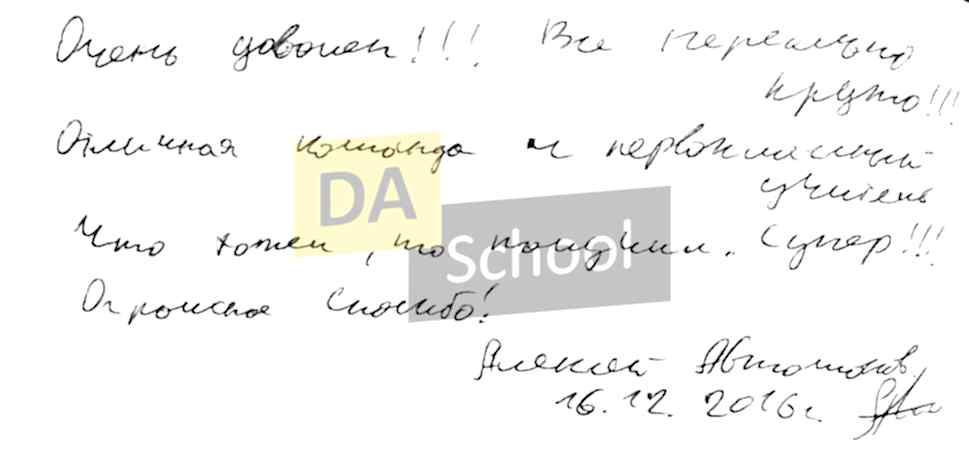 Очень доволен!!! Все нереально
круто!!!
Отличная команда и первоклассный
учитель
DA
Что хотел, то получил. Супер!!!
School
Огромное спасибо!
Алексей Автономов
16.12.2016г.